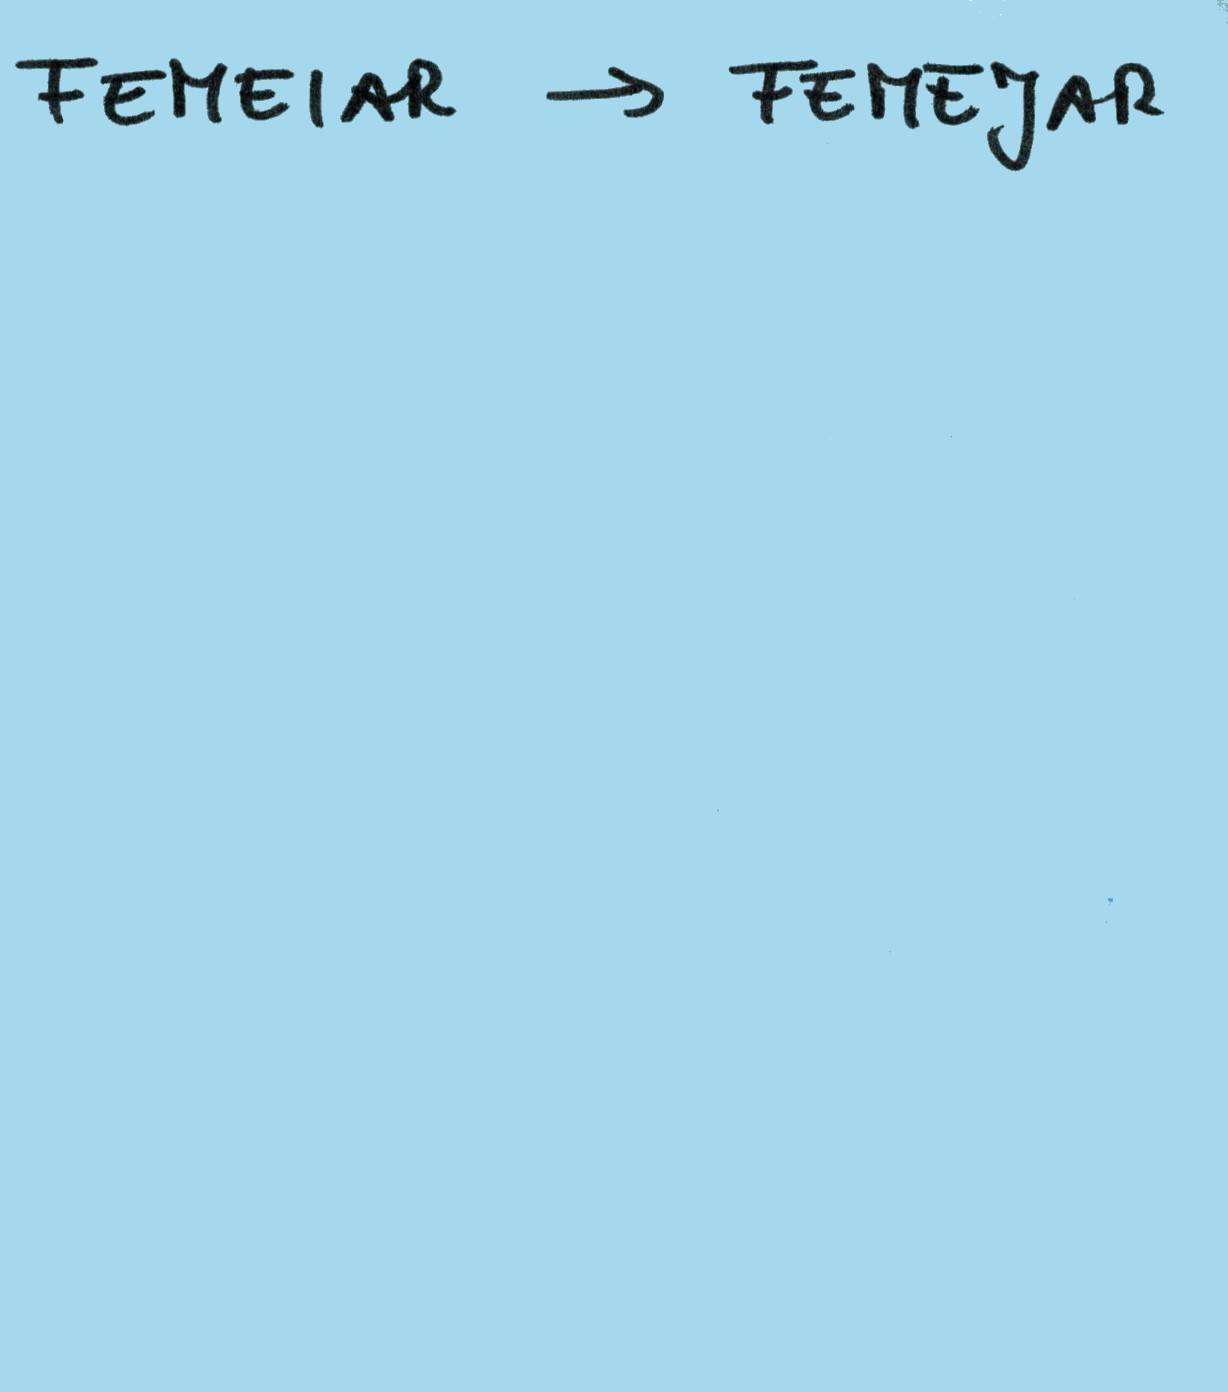 FEMEIAR → FEMEJAR